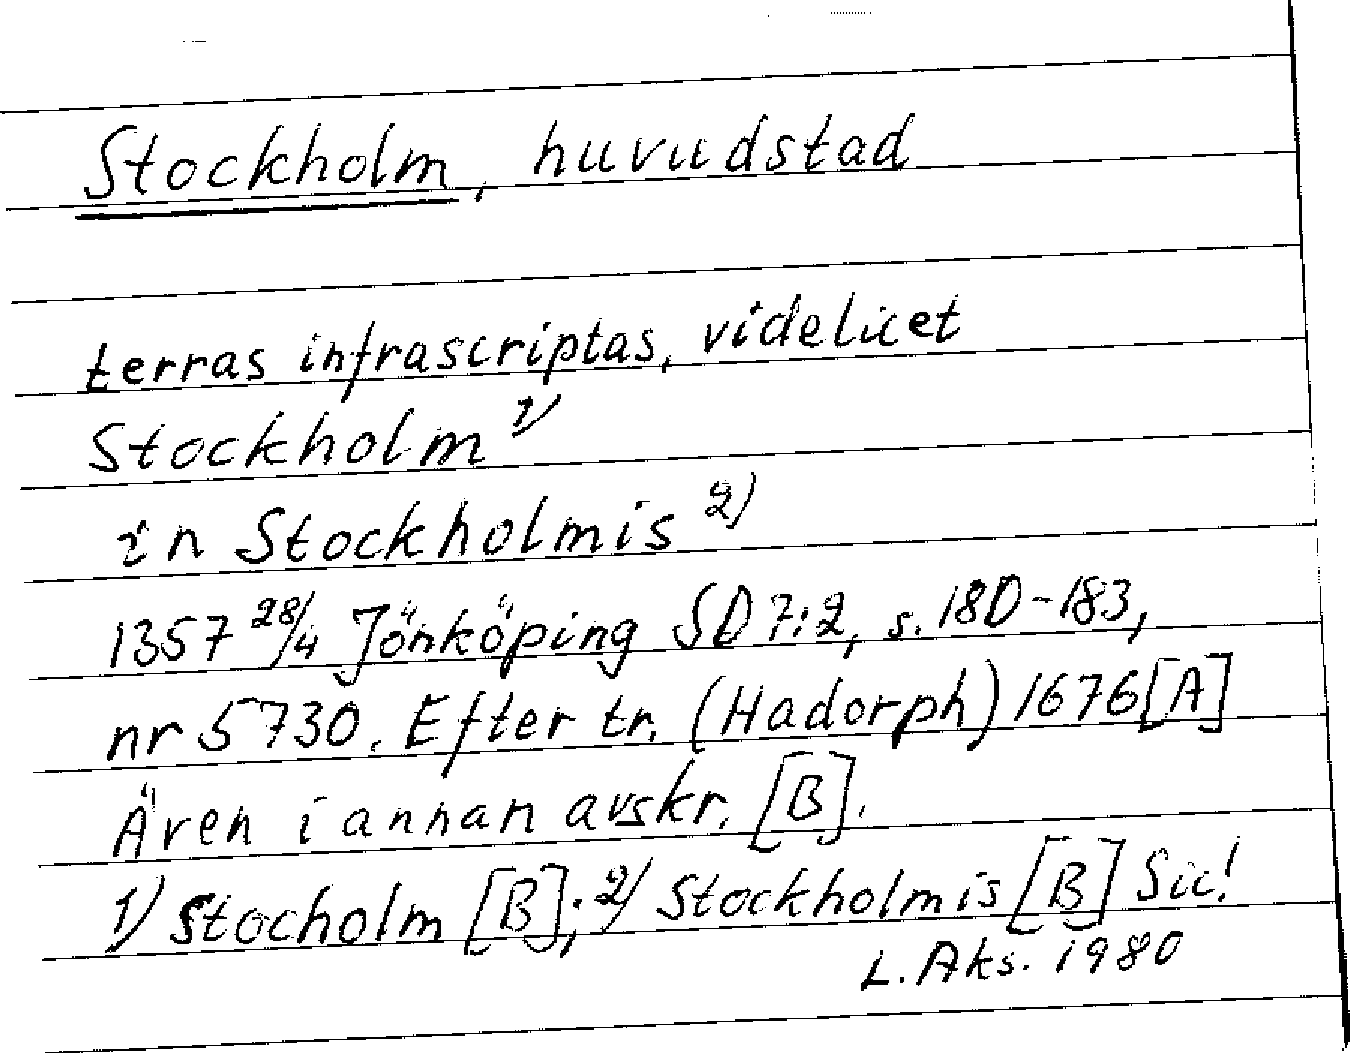 Stockholm, huvudstad
terras infrascriptas, videlicet
Stockholm 1)
in Stockholmis 2)
1357 28/4 Jönköping SD 7:2, s. 180-183,
nr 5730. Efter tr. (Hadorph) 1676 [A]
Även i annan avskr. [B].
1) Stocholm [B]; 2) Stockholmis [B] Sic!
L. Aks. 1980